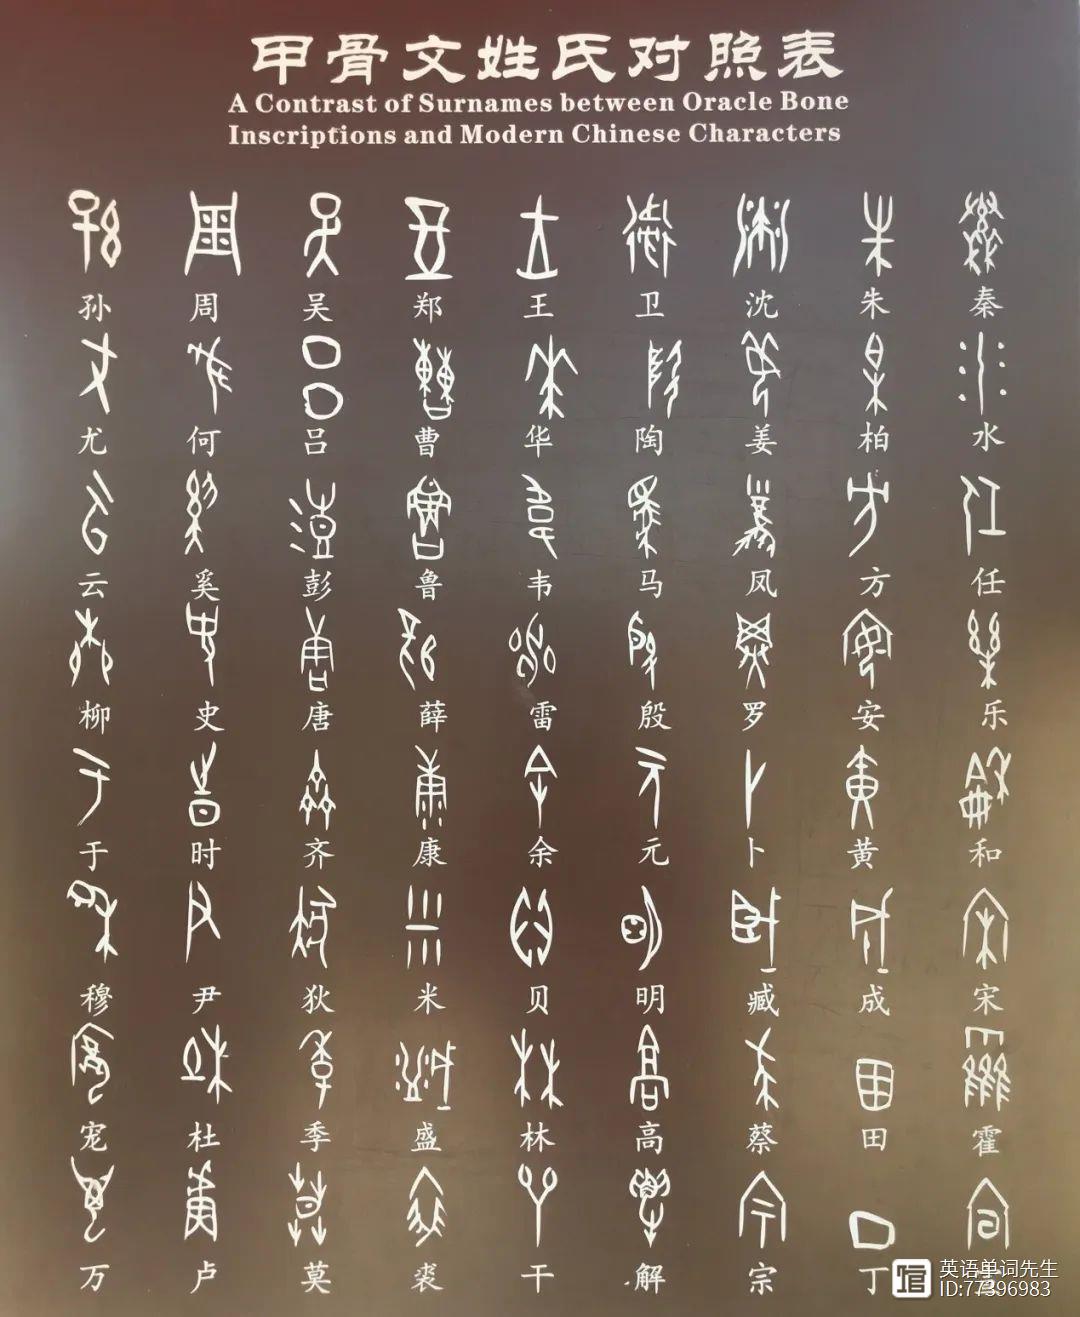 甲骨文姓氏对照表
A Contrast of Surnames between Oracle Bone
Inscriptions and Modern Chinese Characters
孙 周 吴 郑 王 卫 沈 朱 秦
尤 何 吕 曹 华 陶 姜 柏 水
云 奚 彭 鲁 韦 马 凤 方 任
柳 史 唐 薛 雷 殷 罗 安 乐
于 时 齐 康 余 元 卜 黄 和
穆 尹 狄 米 贝 明 臧 成 宋
宠 杜 季 盛 林 高 蔡 田 霍
万 卢 莫 裘 干 解 宗 丁
英语单词先生
ID:77396983